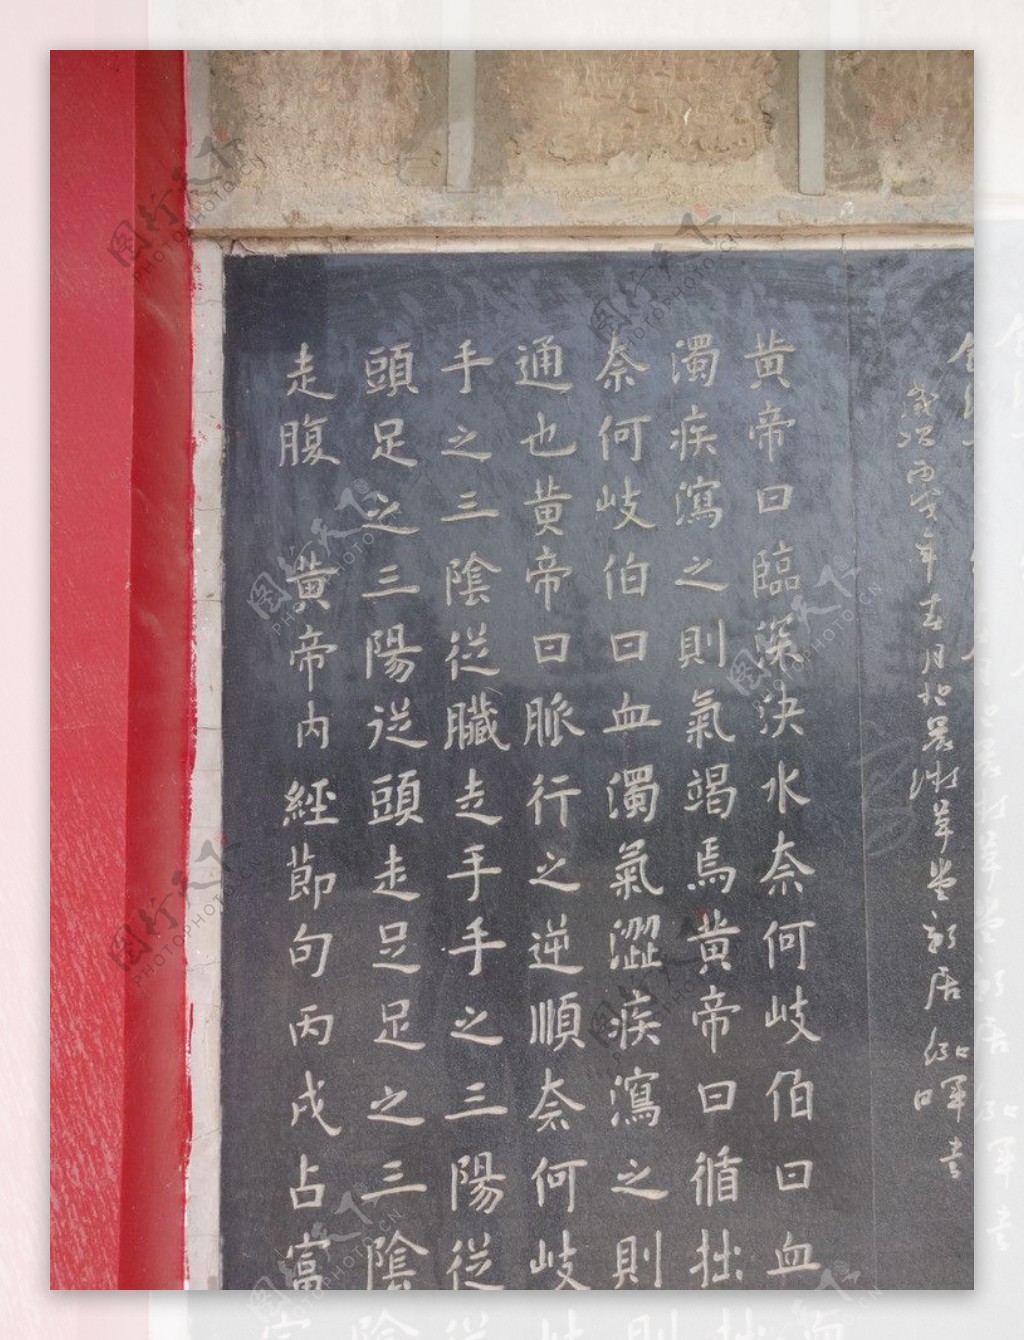 歲次丙戌年春月草堂新居
黄帝曰臨深決水奈何岐伯曰血
濁疾瀉之則氣竭焉黄帝曰循拙
奈何岐伯曰血濁氣澀疾瀉之則
通也黄帝曰脈行之逆順奈何岐
手之三陰從臟走手手之三陽從
頭足之三陽從頭走足足之三陰
走腹 黄帝内經節句丙戌占富
图行天下 PHOTOPHOTO.CN